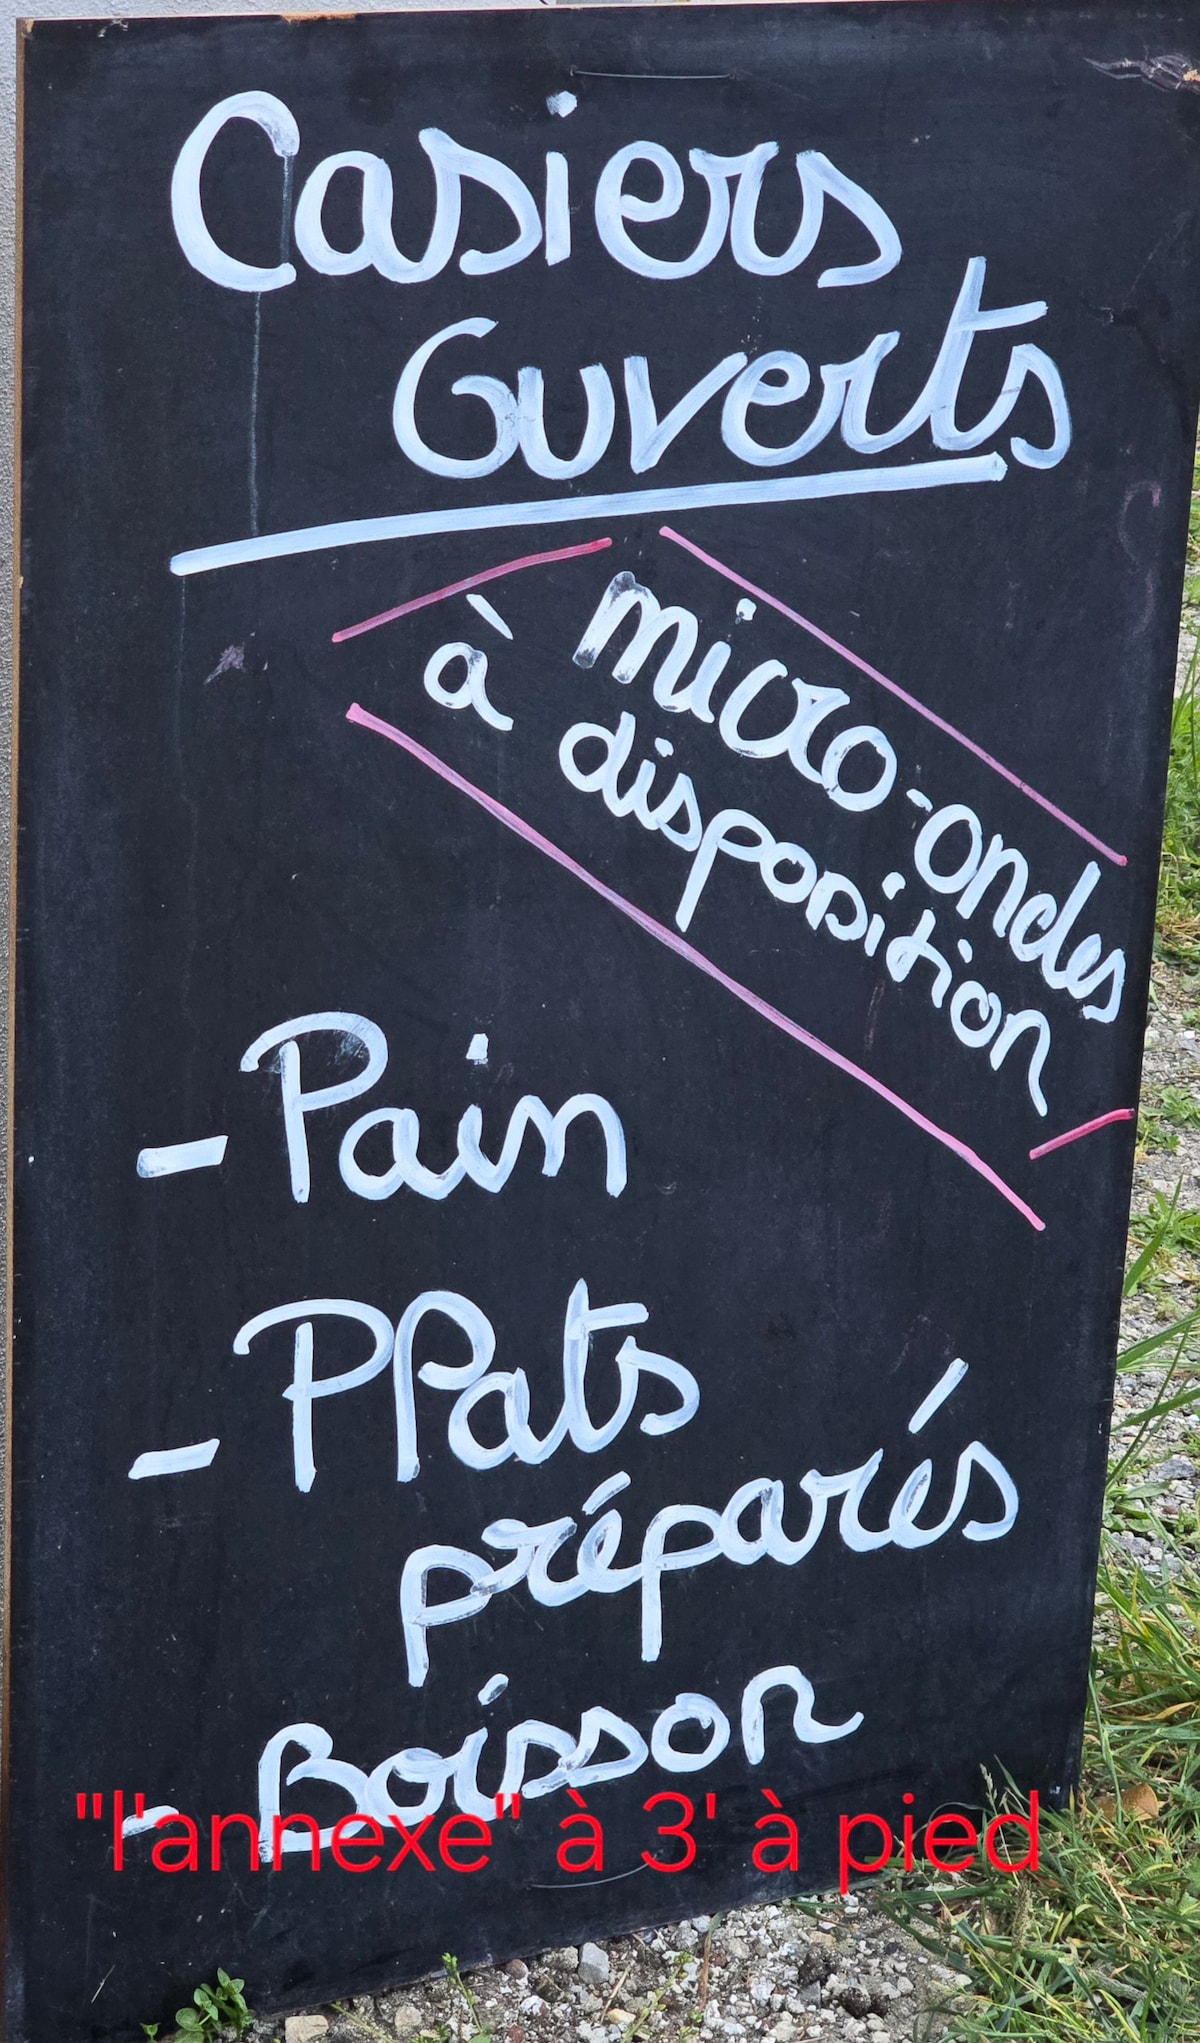 Casiers
Ouverts
micro-ondes
à disposition
- Pain
- PPats
préparés
- Boisson
"l'annexe" à 3' à pied